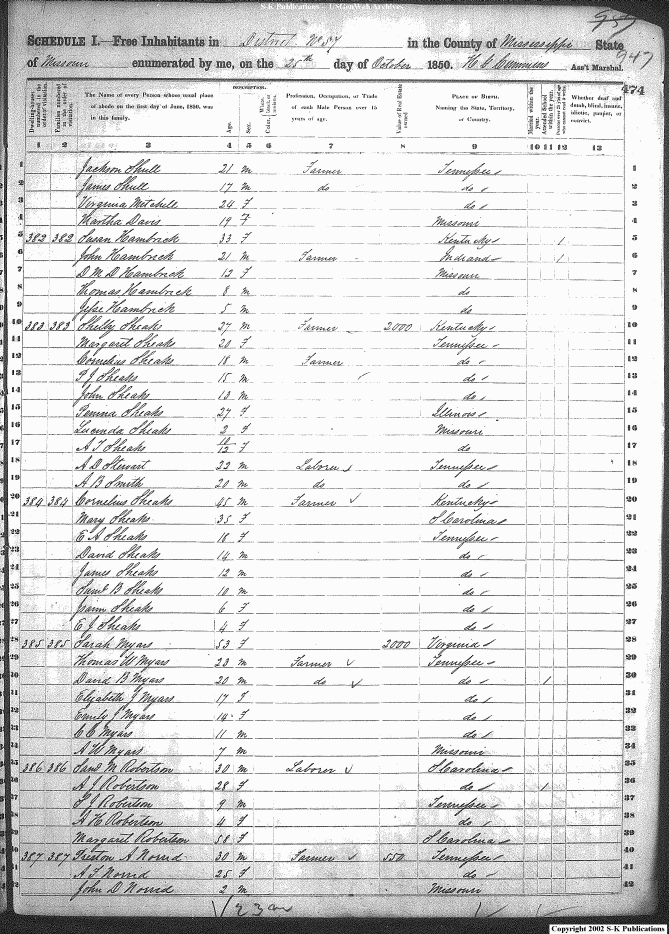 S-K Publications - USGenWeb Archives
947
SCHEDULE I.—Free Inhabitants in District No 57 in the County of Mississippi State
of Missouri enumerated by me, on the 25th day of October 1850. Ass't Marshal.
474
DESCRIPTION.
Dwelling-houses numbered in the order of visitation. Families numbered in the order of visitation. The Name of every Person whose usual place of abode on the first day of June, 1850, was in this family. Age. Sex. Profession, Occupation, or Trade of each Male Person over 15 years of age. Value of Real Estate owned. PLACE OF BIRTH. Naming the State, Territory, or Country. Married within the year. Attended School within the year. Whether deaf and dumb, blind, insane, idiotic, pauper, or convict.
1 2 3 4 5 6 7 8 9 10 11 12 13
1 Jackson Shull 21 m Farmer Tennessee 1
2 James Shull 17 m do do 2
3 Virginia Mitchell 24 F do 3
4 Martha Davis 19 F Missouri 4
5 382 382 Susan Hambrick 33 F Kentucky 1 5
6 John Hambrick 21 m Farmer Indiana 1 6
7 D M D Hambrick 12 F Missouri 7
8 Thomas Hambrick 8 m do 8
9 Jesse Hambrick 5 m do 9
10 383 383 Shelby Sheaks 27 m Farmer 2000 Kentucky 10
11 Margaret Sheaks 20 F Tennessee 11
12 Cornelius Sheaks 18 m Farmer do 12
13 Sheaks 15 m do 13
14 John Sheaks 13 m do 14
15 Sheaks 27 F Illinois 15
16 Lucinda Sheaks 2 F Missouri 16
17 A T Sheaks 10/12 F do 17
18 A D Stewart 22 m Laborer Tennessee 18
19 A B Smith 20 m do do 19
20 384 384 Cornelius Sheaks 45 m Farmer Kentucky 20
21 Mary Sheaks 35 F S Carolina 21
22 E A Sheaks 18 F Tennessee 22
23 David Sheaks 14 m do 23
24 James Sheaks 12 m do 24
25 Saml B Sheaks 10 m do 25
26 Sheaks 6 F do 26
27 E J Sheaks 4 F do 27
28 385 385 Sarah Myars 53 F 2000 Virginia 28
29 Thomas W Myars 23 m Farmer Tennessee 29
30 David B Myars 20 m do do 1 30
31 Elizabeth J Myars 17 F do 31
32 Emily J Myars 14 F do 32
33 C C Myars 11 m do 33
34 A W Myars 7 m Missouri 34
35 386 386 Saml M Robertson 30 m Laborer S Carolina 35
36 A J Robertson 28 F do 1 36
37 S J Robertson 9 m Tennessee 37
38 A H Robertson 4 F do 38
39 Margaret Robertson 58 F S Carolina 39
40 387 387 Preston A Norrid 30 m Farmer 550 Tennessee 40
41 A T Norrid 25 F do 41
42 John D Norrid 2 m Missouri 42
Copyright 2002 S-K Publications